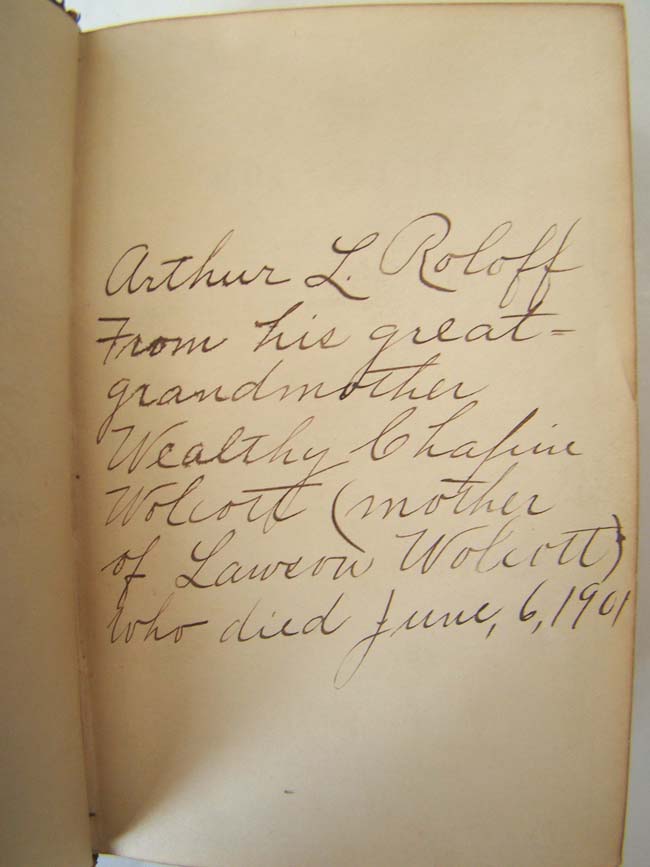 Arthur L. Roloff
From his great-
grandmother
Wealthy Chapin
Wolcott (mother
of Lawson Wolcott)
who died June, 6, 1901